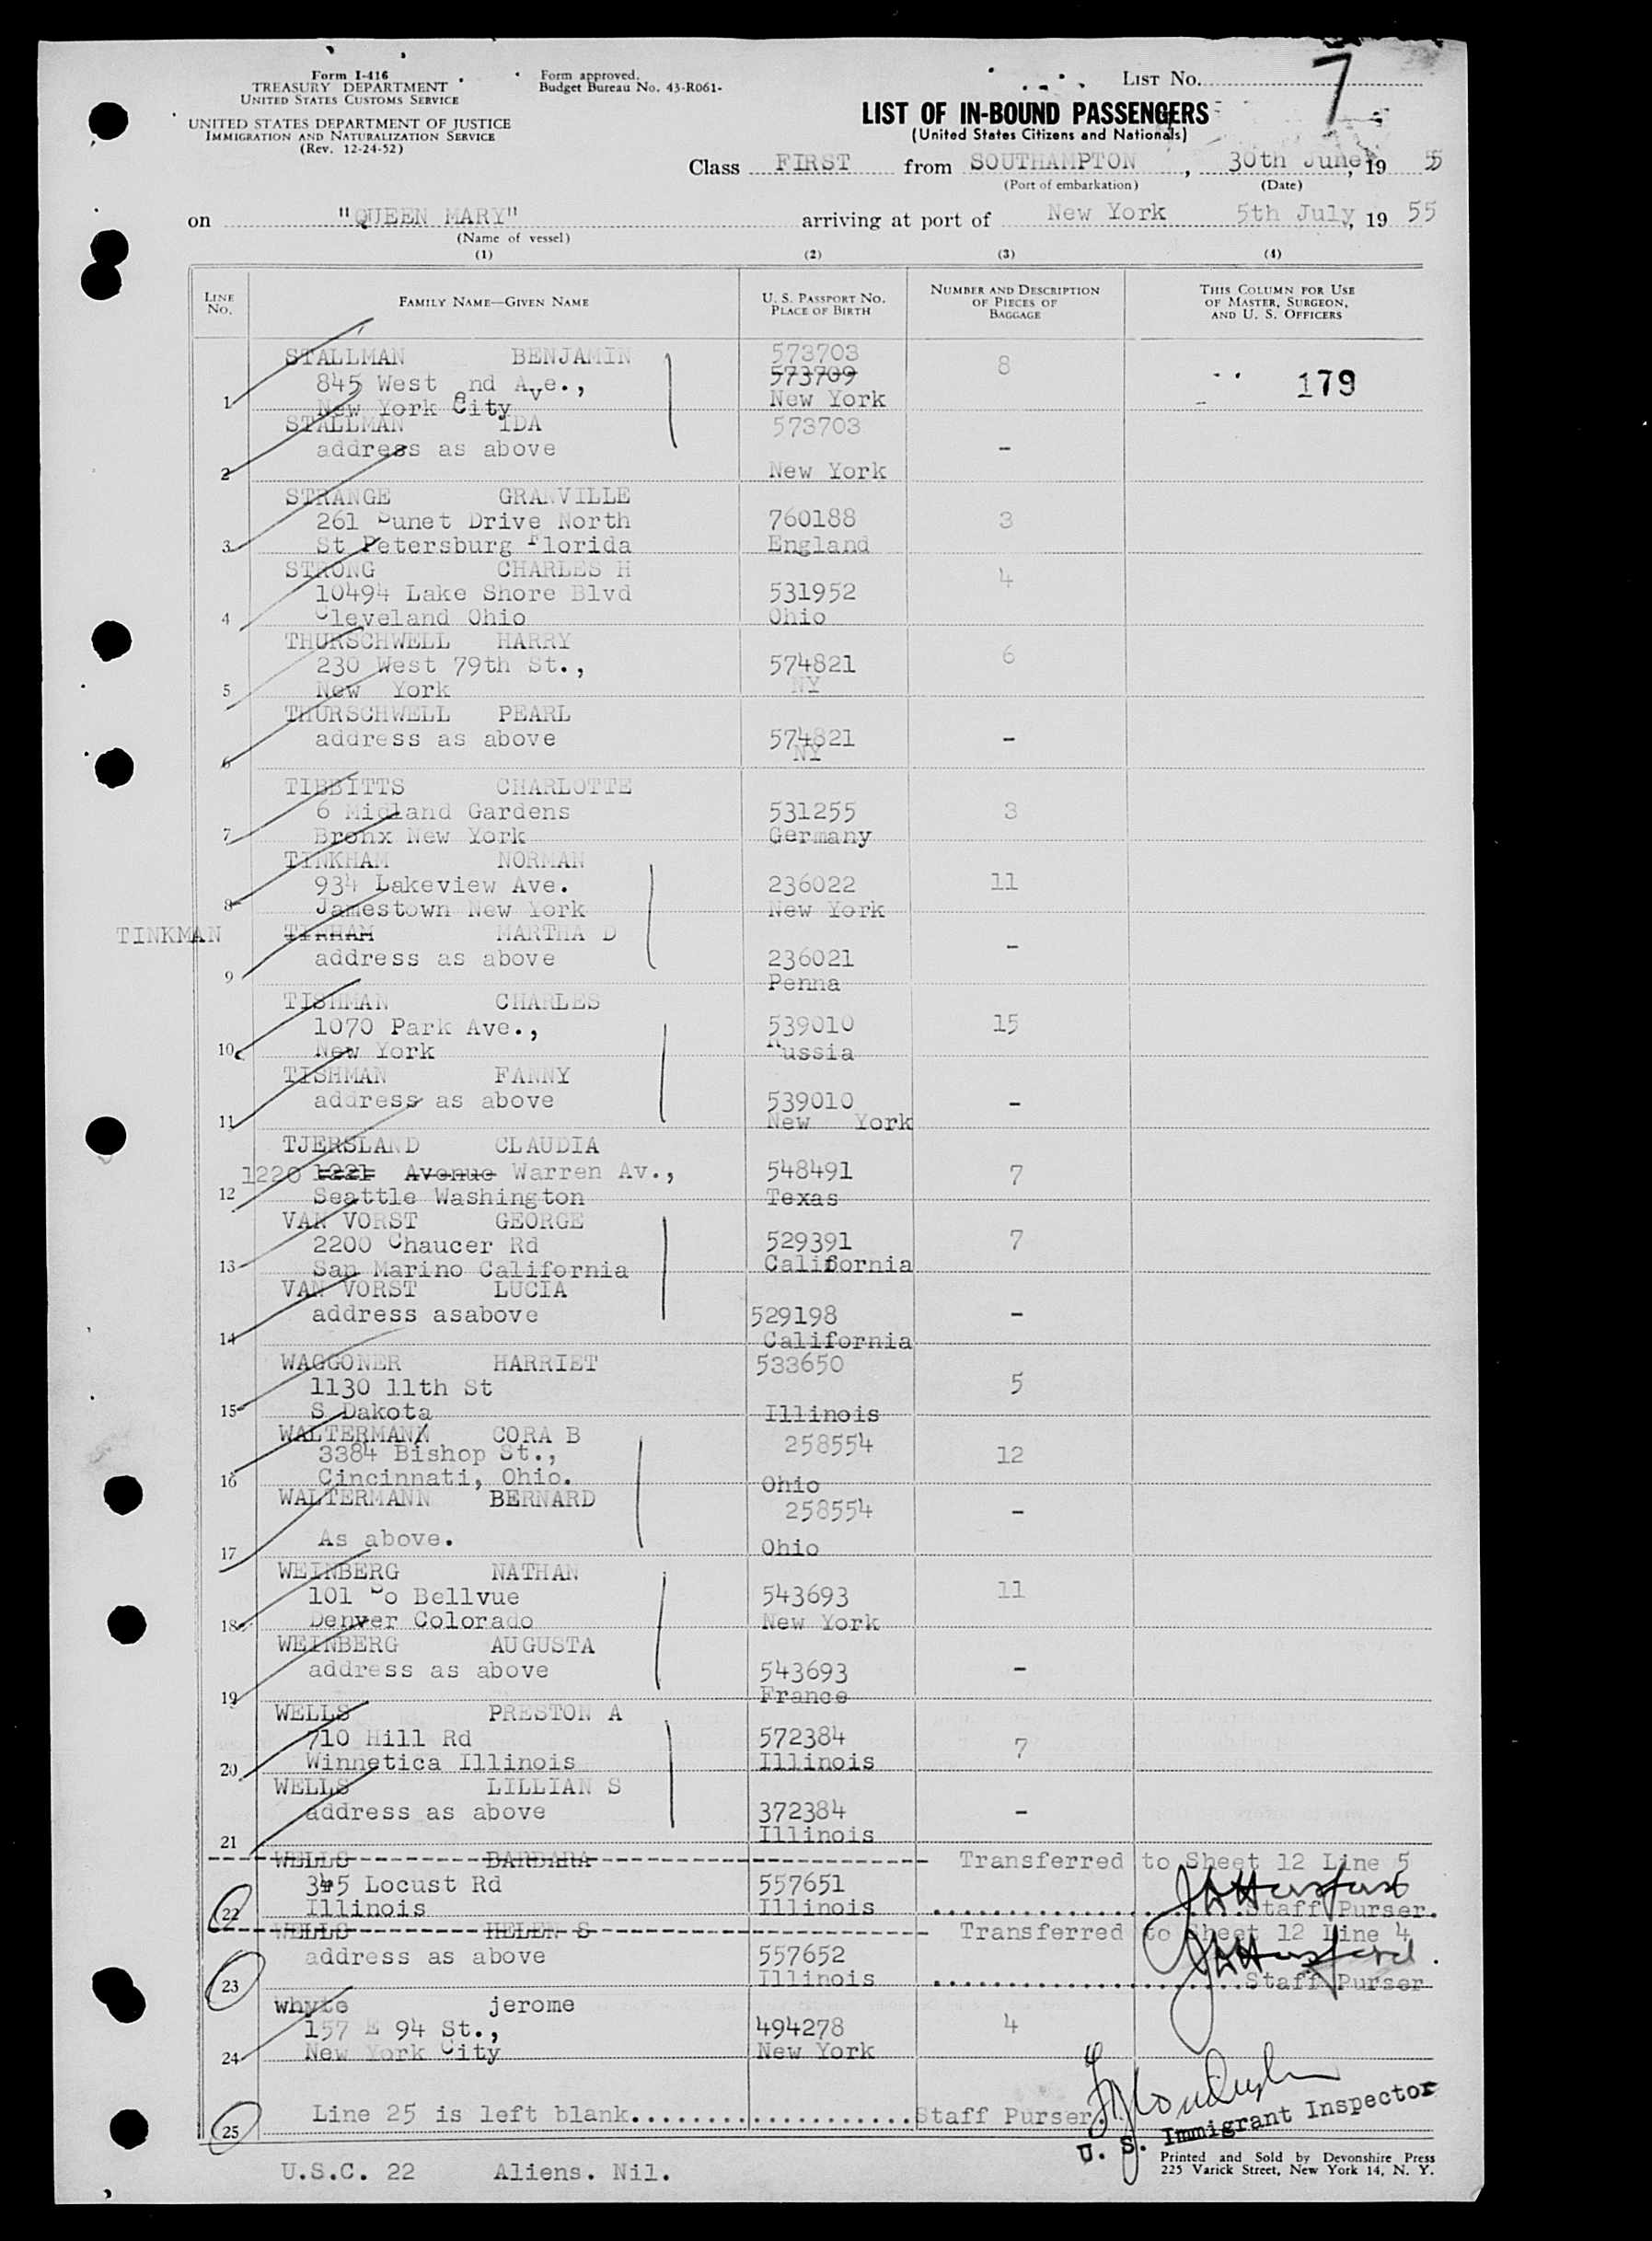 Form I-416
TREASURY DEPARTMENT
UNITED STATES CUSTOMS SERVICE
UNITED STATES DEPARTMENT OF JUSTICE
IMMIGRATION AND NATURALIZATION SERVICE
(Rev. 12-24-52)
Form approved.
Budget Bureau No. 43-R061-
LIST NO. 7
LIST OF IN-BOUND PASSENGERS
(United States Citizens and Nationals)
Class FIRST from SOUTHAMPTON, 30th June, 19 55
(Port of embarkation) (Date)
on "QUEEN MARY" arriving at port of New York 5th July, 19 55
(Name of vessel)
(1) (2) (3) (4)
LINE NO. FAMILY NAME—GIVEN NAME U. S. PASSPORT NO. PLACE OF BIRTH NUMBER AND DESCRIPTION OF PIECES OF BAGGAGE THIS COLUMN FOR USE OF MASTER, SURGEON, AND U. S. OFFICERS
STALLMAN BENJAMIN 573703 8
845 West end Ave., 573709 179
1 New York City New York
STALLMAN IDA 573703
address as above -
2 New York
STRANGE GRANVILLE
261 Sunet Drive North 760188 3
3 St Petersburg Florida England
STRONG CHARLES H 4
10494 Lake Shore Blvd 531952
4 Cleveland Ohio Ohio
THURSCHWELL HARRY 6
230 West 79th St., 574821
5 New York NY
THURSCHWELL PEARL
address as above 574821 -
6 NY
TIBBITTS CHARLOTTE
6 Midland Gardens 531255 3
7 Bronx New York Germany
TINKHAM NORMAN
934 Lakeview Ave. 236022 11
8 Jamestown New York New York
TINKMAN TINHAM MARTHA D -
address as above 236021
9 Penna
TISHMAN CHARLES
1070 Park Ave., 539010 15
10 New York Russia
TISHMAN FANNY
address as above 539010 -
11 New York
TJERSLAND CLAUDIA
1220 1221 Avenue Warren Av., 548491 7
12 Seattle Washington Texas
VAN VORST GEORGE
2200 Chaucer Rd 529391 7
13 San Marino California California
VAN VORST LUCIA
address asabove 529198 -
14 California
WAGGONER HARRIET 533650
1130 11th St 5
15 S Dakota Illinois
WALTERMANN CORA B 258554
3384 Bishop St., 12
16 Cincinnati, Ohio. Ohio
WALTERMANN BERNARD 258554 -
As above.
17 Ohio
WEINBERG NATHAN
101 So Bellvue 543693 11
18 Denver Colorado New York
WEINBERG AUGUSTA
address as above 543693 -
19 France
WELLS PRESTON A
710 Hill Rd 572384 7
20 Winnetica Illinois Illinois
WELLS LILLIAN S
address as above 372384 -
21 Illinois
WELLS BARBARA Transferred to Sheet 12 Line 5
345 Locust Rd 557651
22 Illinois Illinois Staff Purser.
WELLS HELEN S Transferred to Sheet 12 Line 4
address as above 557652
23 Illinois Staff Purser
whyte jerome
157 E 94 St., 494278 4
24 New York City New York
25 Line 25 is left blank....................Staff Purser.
U. S. Immigrant Inspector
U.S.C. 22 Aliens. Nil.
Printed and Sold by Devonshire Press
225 Varick Street, New York 14, N. Y.